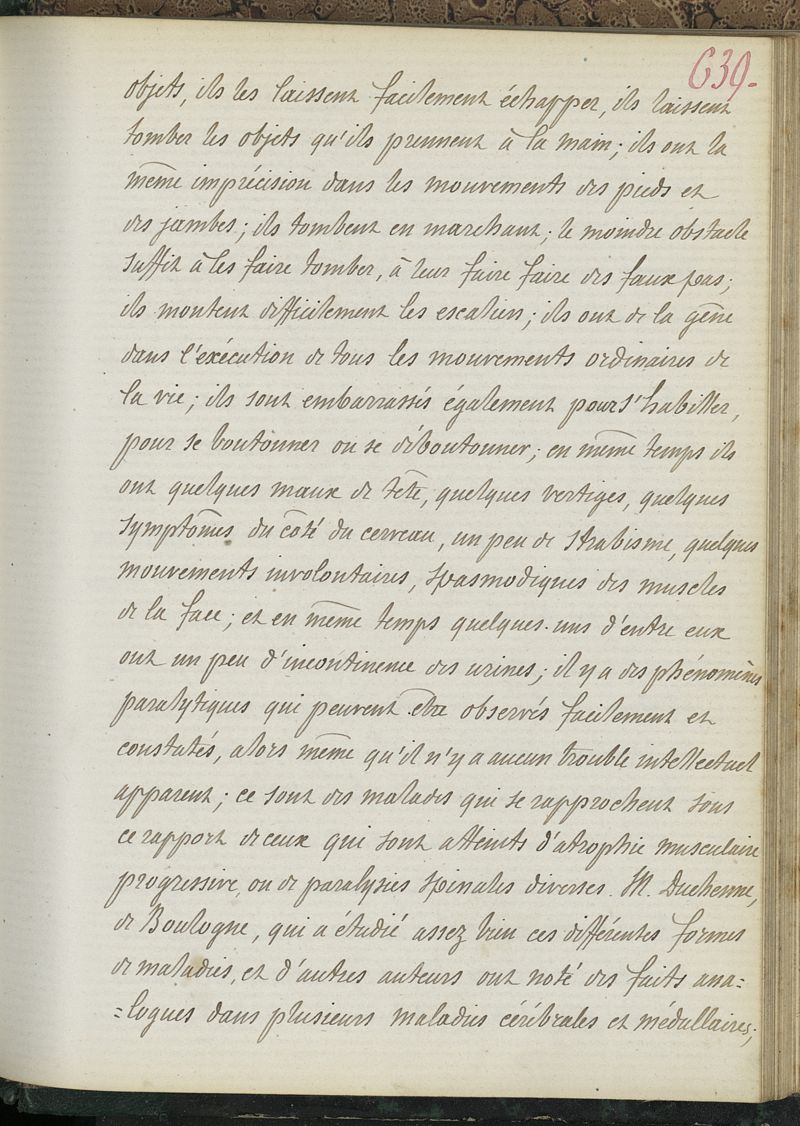 639.
objets, ils les laissent facilement échapper, ils laissent
tomber les objets qu'ils prennent à la main; ils ont la
même imprécision dans les mouvements des pieds et
des jambes; ils tombent en marchant; le moindre obstacle
suffit à les faire tomber, à leur faire faire des faux pas;
ils montent difficilement les escaliers; ils ont de la gêne
dans l'exécution de tous les mouvements ordinaires de
la vie; ils sont embarrassés également pour s'habiller,
pour se boutonner ou se déboutonner; en même temps ils
ont quelques maux de tête, quelques vertiges, quelques
symptômes du côté du cerveau, un peu de strabisme, quelques
mouvements involontaires, spasmodiques des muscles
de la face; et en même temps quelques-uns d'entre eux
ont un peu d'incontinence des urines; il y a des phénomènes
paralytiques qui peuvent être observés facilement et
constatés, alors même qu'il n'y a aucun trouble intellectuel
apparent; ce sont des malades qui se rapprochent sous
ce rapport de ceux qui sont atteints d'atrophie musculaire
progressive, ou de paralysies spinales diverses. M. Duchenne,
de Boulogne, qui a étudié assez bien ces différentes formes
de maladies, et d'autres auteurs ont noté des faits ana=
=logues dans plusieurs maladies cérébrales et médullaires;